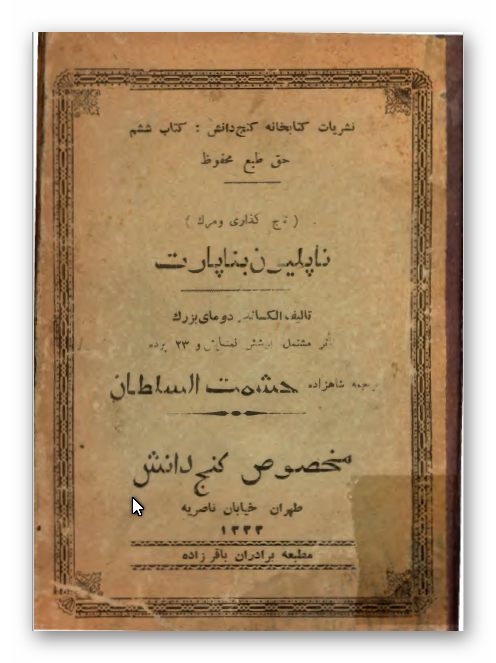 نشریات کتابخانه کنج دانش : کتاب ششم
حق طبع محفوظ
( تاج کذاری ومرك )
ناپلیون بناپارت
تالیف الکساندر دومای بزرك
مشتمل برشش نمایش و ۲۳ پرده
ترجمه شاهزاده حشمت السلطان
مخصوص کنج دانش
طهران خیابان ناصریه
۱۳۳۳
مطبعه برادران باقرزاده